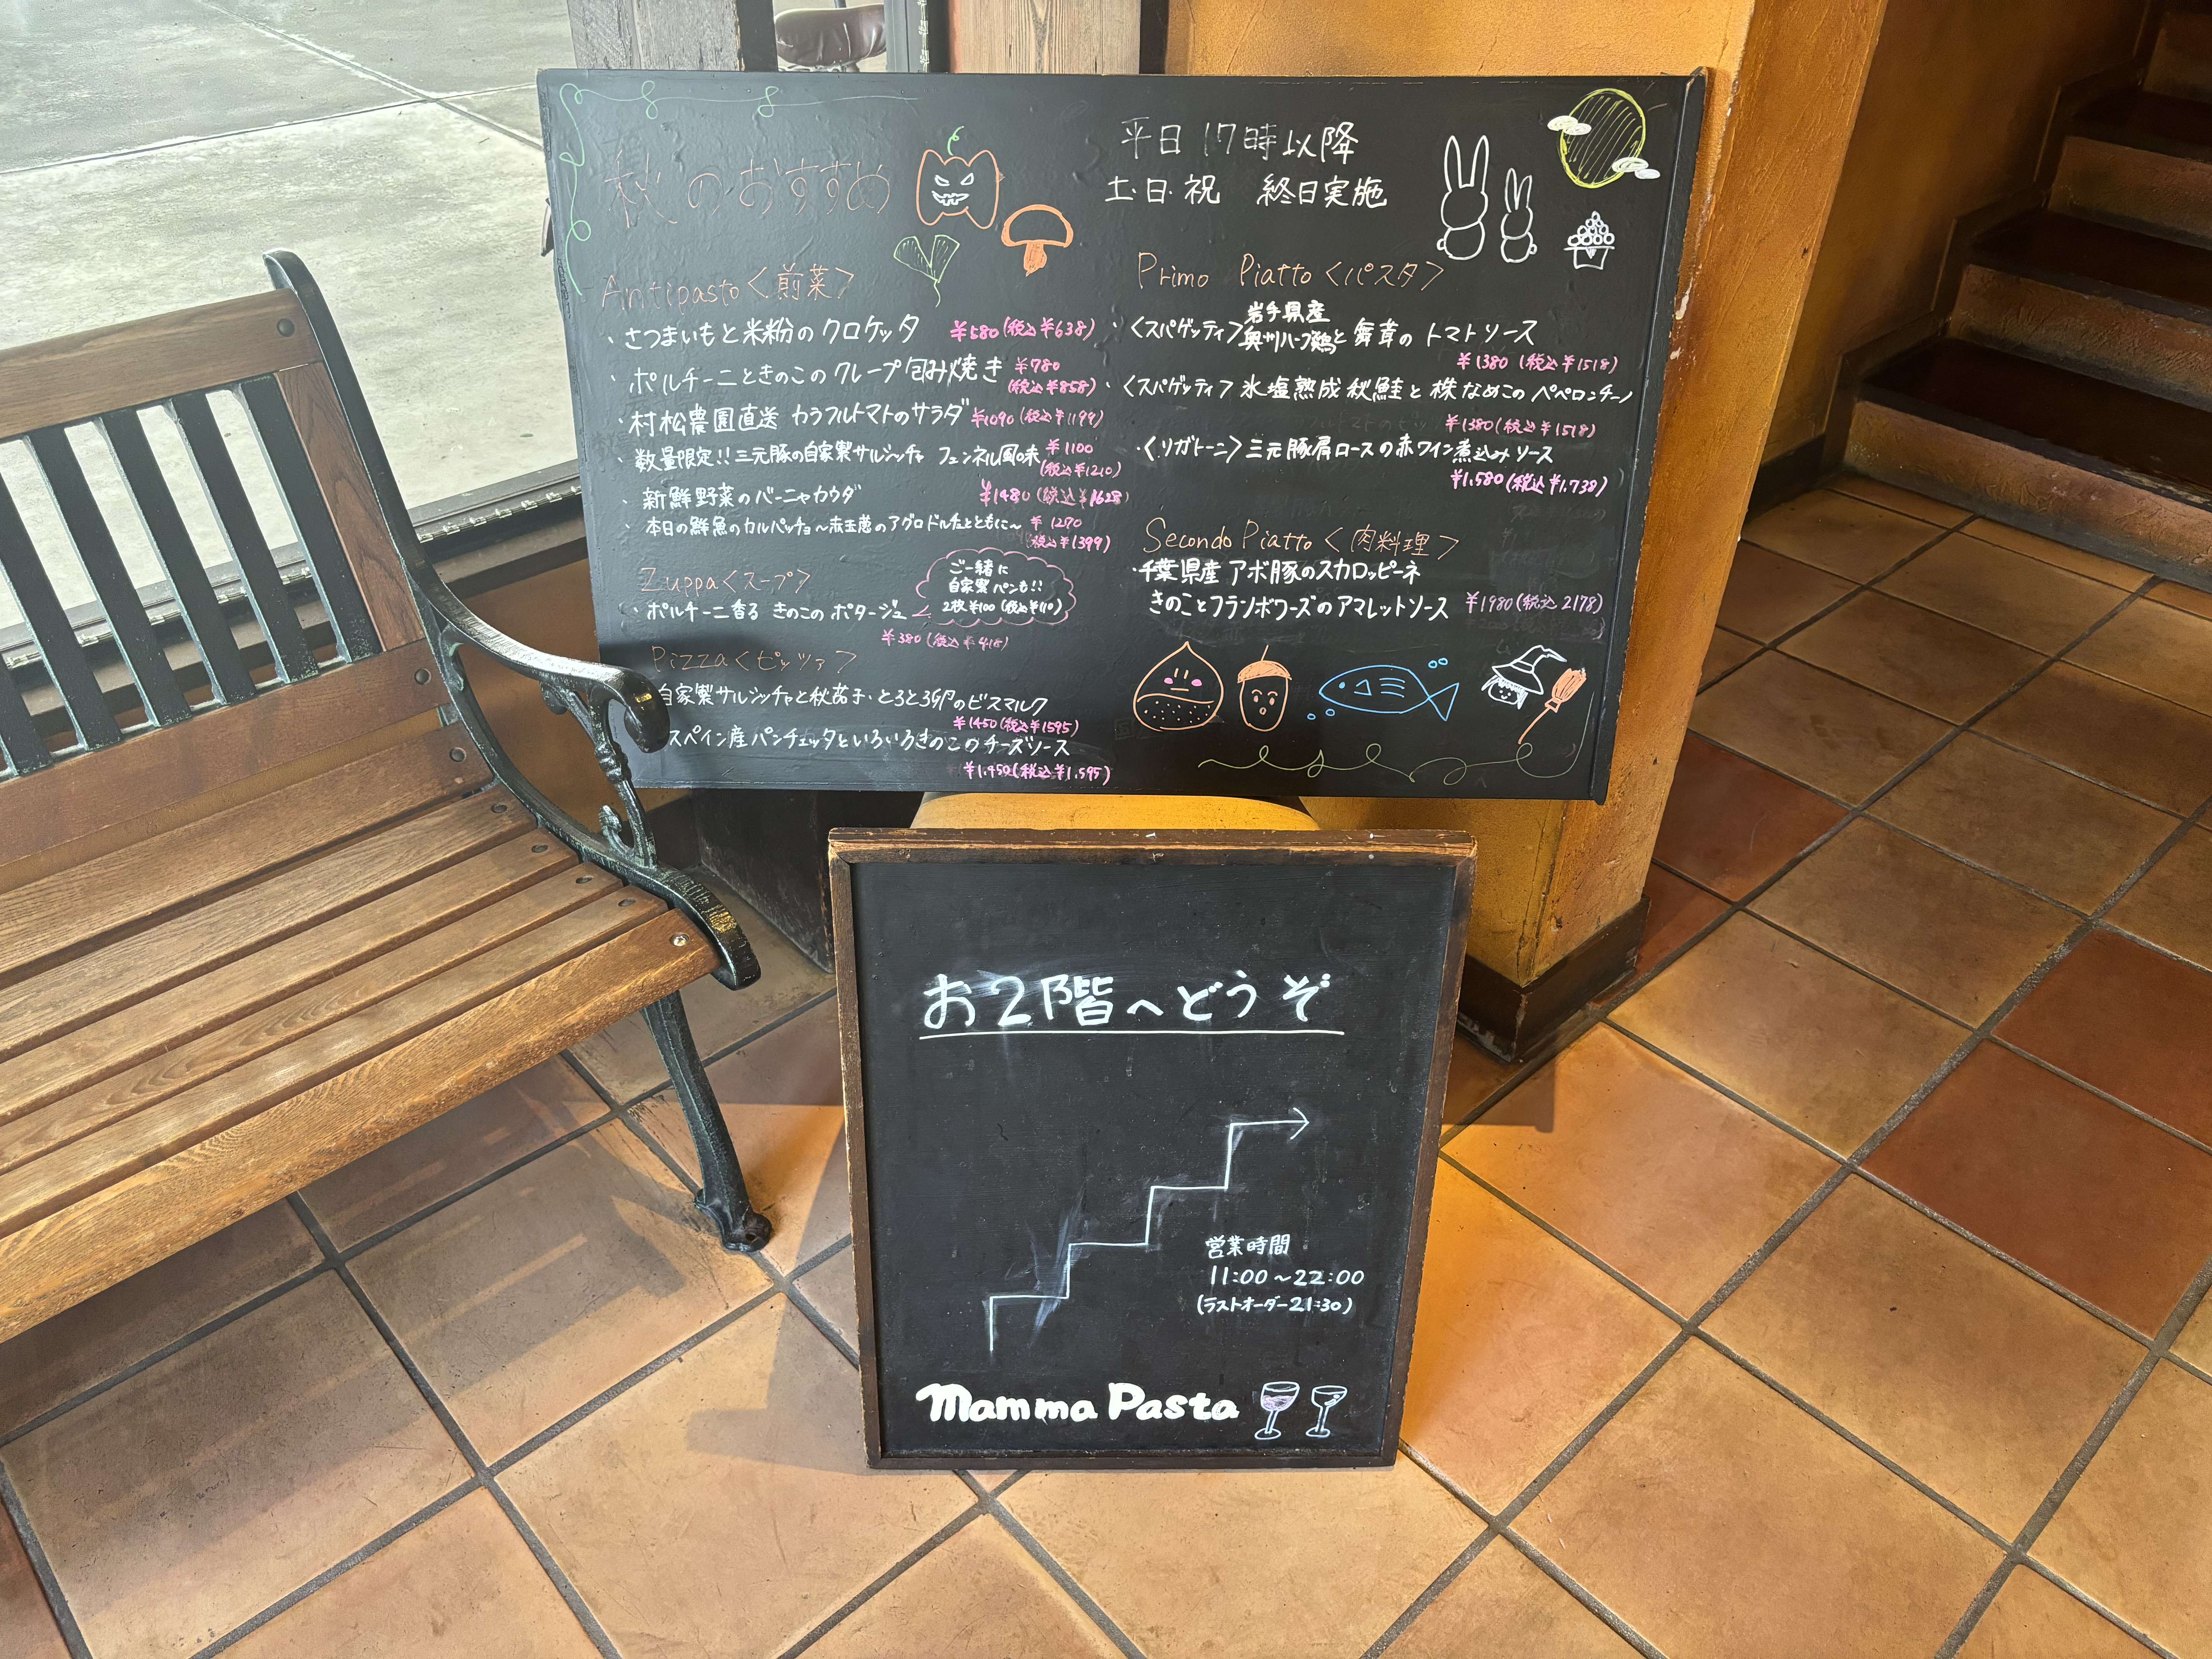 秋のおすすめ
平日 17時以降
土・日・祝 終日実施
Antipasto<前菜>
・さつまいもと米粉のクロケッタ ¥580(税込¥638)
・ポルチーニときのこのクレープ包み焼き ¥780
(税込¥858)
・村松農園直送 カラフルトマトのサラダ ¥1090(税込¥1199)
・数量限定!!三元豚の自家製サルシッチャ フェンネル風味 ¥1100
(税込¥1210)
・新鮮野菜のバーニャカウダ ¥1480(税込¥1628)
・本日の鮮魚のカルパッチョ〜赤玉葱のアグロドルチェとともに〜 ¥1270
税込¥1399)
Zuppa<スープ>
・ポルチーニ香る きのこのポタージュ
¥380(税込¥418)
ご一緒に
自家製パンも!!
2枚¥100(税込¥110)
Pizza<ピッツァ>
自家製サルシッチャと秋茄子・とろとろ卵のビスマルク
¥1450(税込¥1595)
スペイン産パンチェッタといろいろきのこのチーズソース
¥1.450(税込¥1.595)
Primo Piatto<パスタ>
・<スパゲッティ>岩手県産
奥州ハーブ鶏と舞茸のトマトソース
¥1380(税込¥1518)
・<スパゲッティ>氷塩熟成秋鮭と株なめこのペペロンチーノ
¥1380(税込¥1518)
・<リガトーニ>三元豚肩ロースの赤ワイン煮込みソース
¥1.580(税込¥1.738)
Secondo Piatto<肉料理>
・千葉県産アボ豚のスカロッピーネ
きのことフランボワーズのアマレットソース ¥1980(税込2178)
お2階へどうぞ
営業時間
11:00〜22:00
(ラストオーダー21:30)
Mamma Pasta